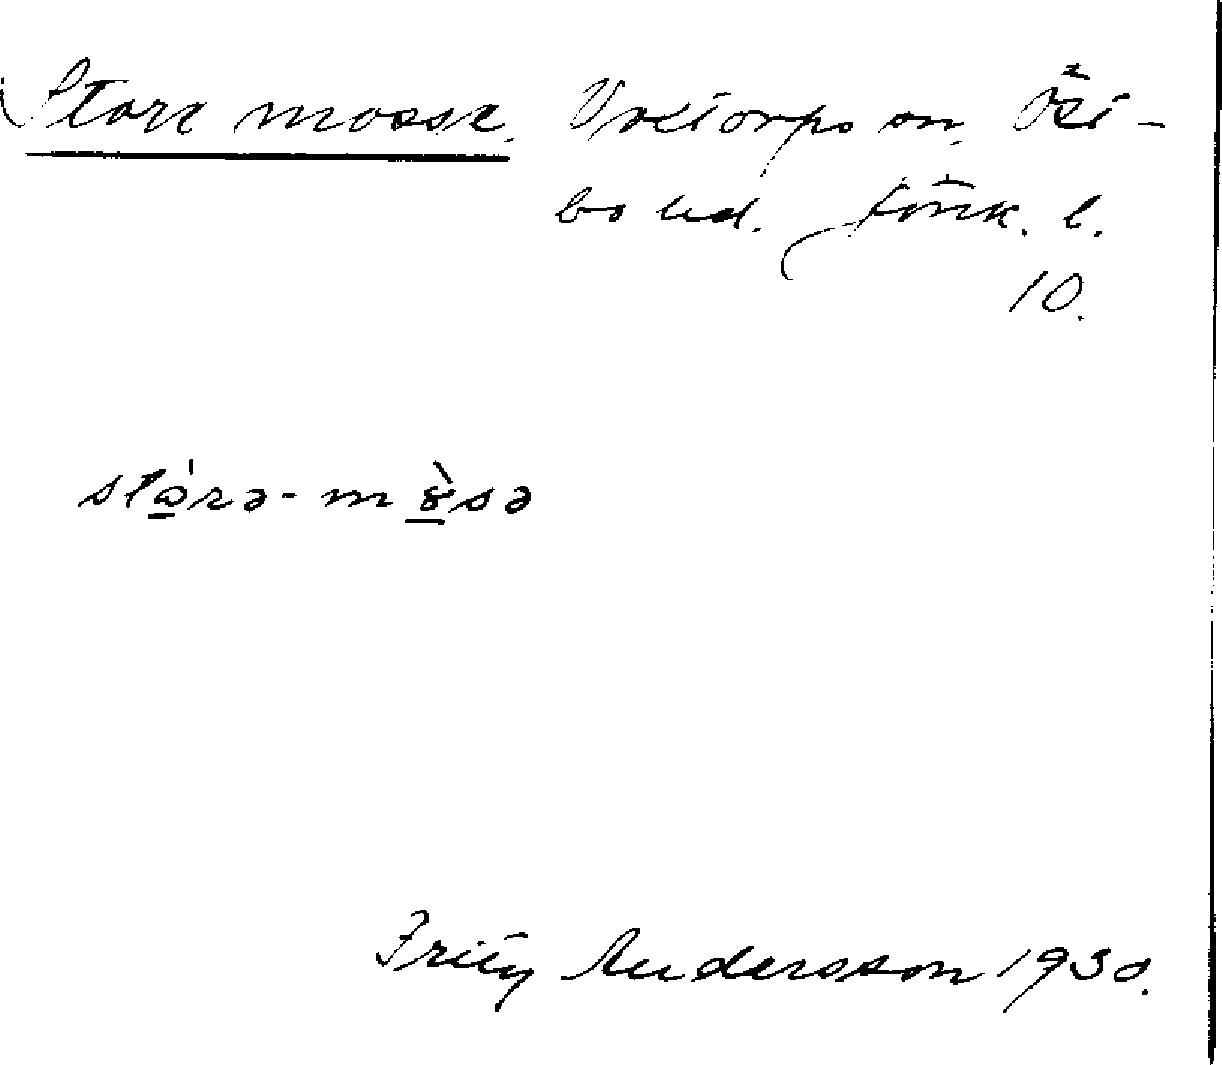 Store mosse. Vretorps sn. Öst-
bo hd. Jönk. l.
10.
stòrə-mòsə
Fritz Andersson 1930.